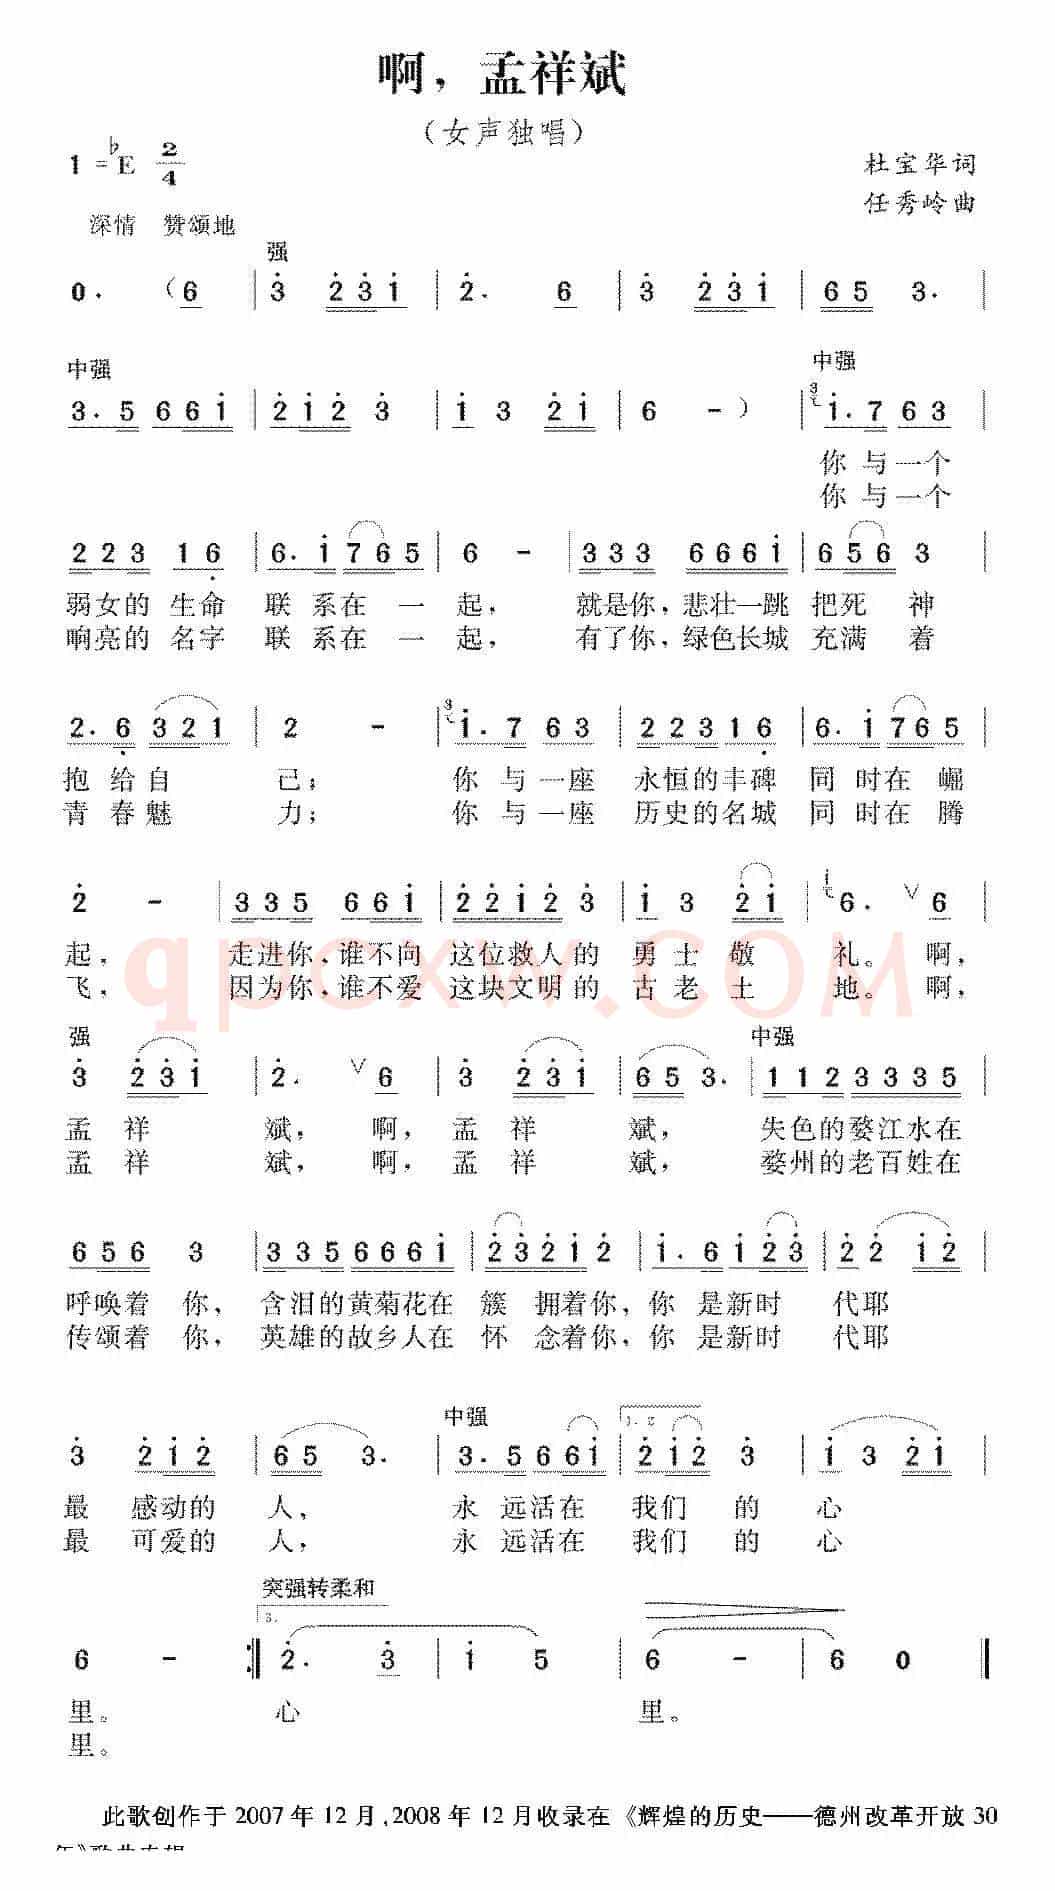 啊，孟祥斌
（女声独唱）
1=♭E 2/4
杜宝华词
任秀岭曲
深情 赞颂地
强
0. （6 | 3 231 | 2. 6 | 3 231 | 65 3. |
中强 中强
3.5 661 | 212 3 | 1 3 21 | 6 -） | 1.7 63 |
你 与一个
你 与一个
223 16 | 6.1 765 | 6 - | 333 6661 | 656 3 |
弱女的 生命 联 系在 一 起， 就是你，悲壮一跳 把死 神
响亮的 名字 联 系在 一 起， 有了你，绿色长城 充满 着
2.6 321 | 2 - | 1.7 63 | 22316 | 6.1 765 |
抱 给自 己； 你 与 一座 永恒的丰碑 同 时在 崛
青 春魅 力； 你 与 一座 历史的名城 同 时在 腾
2 - | 335 661 | 2212 3 | 1 3 21 | 6. ∨ 6 |
起， 走进你，谁不向 这位救人的 勇 士 敬 礼。 啊，
飞， 因为你，谁不爱 这块文明的 古 老 土 地。 啊，
qpcxw.COM
强 中强
3 231 | 2. ∨ 6 | 3 231 | 65 3. | 112 3335 |
孟 祥 斌， 啊， 孟 祥 斌， 失色的婺江水在
孟 祥 斌， 啊， 孟 祥 斌， 婺州的老百姓在
656 3 | 335 6661 | 23212 | 1.6 123 | 22 12 |
呼唤着 你， 含泪的黄菊花在 簇 拥着你，你 是新时 代耶
传颂着 你， 英雄的故乡人在 怀 念着你，你 是新时 代耶
中强 1. 2
3 212 | 65 3. | 3.5 661 | 212 3 | 1 3 21 |
最 感动的 人， 永 远活在 我们 的 心
最 可爱的 人， 永 远活在 我们 的 心
突强转柔和
3.
6 - :‖ 2. 3 | 1 5 | 6 - | 6 0 ‖
里。 心 里。
里。
此歌创作于 2007 年 12 月，2008 年 12 月收录在《辉煌的历史——德州改革开放 30
年》歌曲专辑